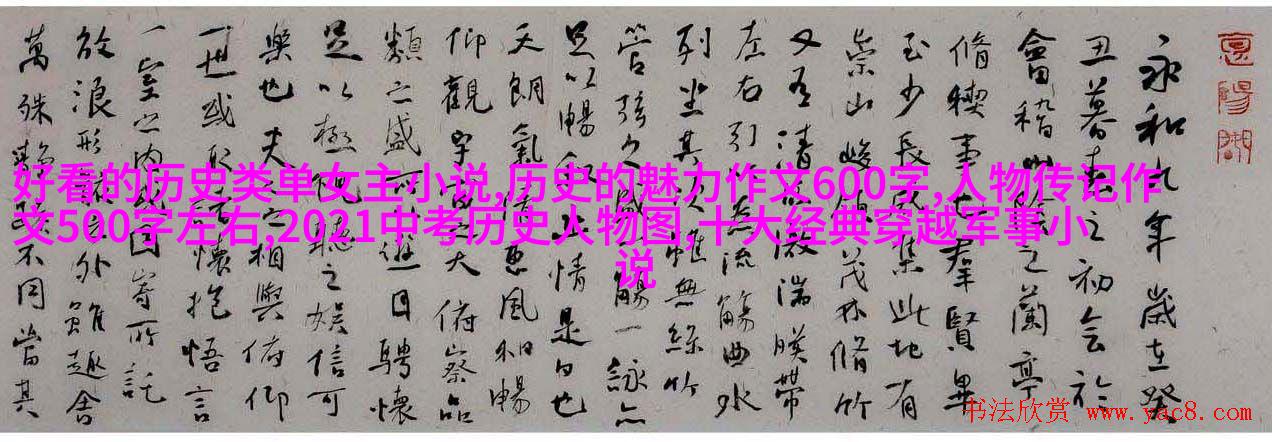 好看的历史类单女主小说,历史的魅力作文600字,人物传记作
文500字左右,2021中考历史人物图,十大经典穿越军事小
说
永和九年歲在癸
丑暮春之初會於
會稽山陰之蘭亭
脩稧事也羣賢畢
至少長咸集此地有
崇山峻領茂林脩竹
又有清流激湍暎帶
左右引以為流觴曲水
列坐其次雖無絲竹
管弦之盛一觴一詠亦
足以暢叙幽情是日也
天朗氣清惠風和暢
仰觀宇宙之大俯察品
類之盛所以遊目騁懷
足以極視聽之娛信可
樂也夫人之相與俯仰
一世或取諸懷抱悟言
一室之內或因寄所託
放浪形骸之外雖趣舍
萬殊靜躁不同當其
书法欣赏 www.yac8.com